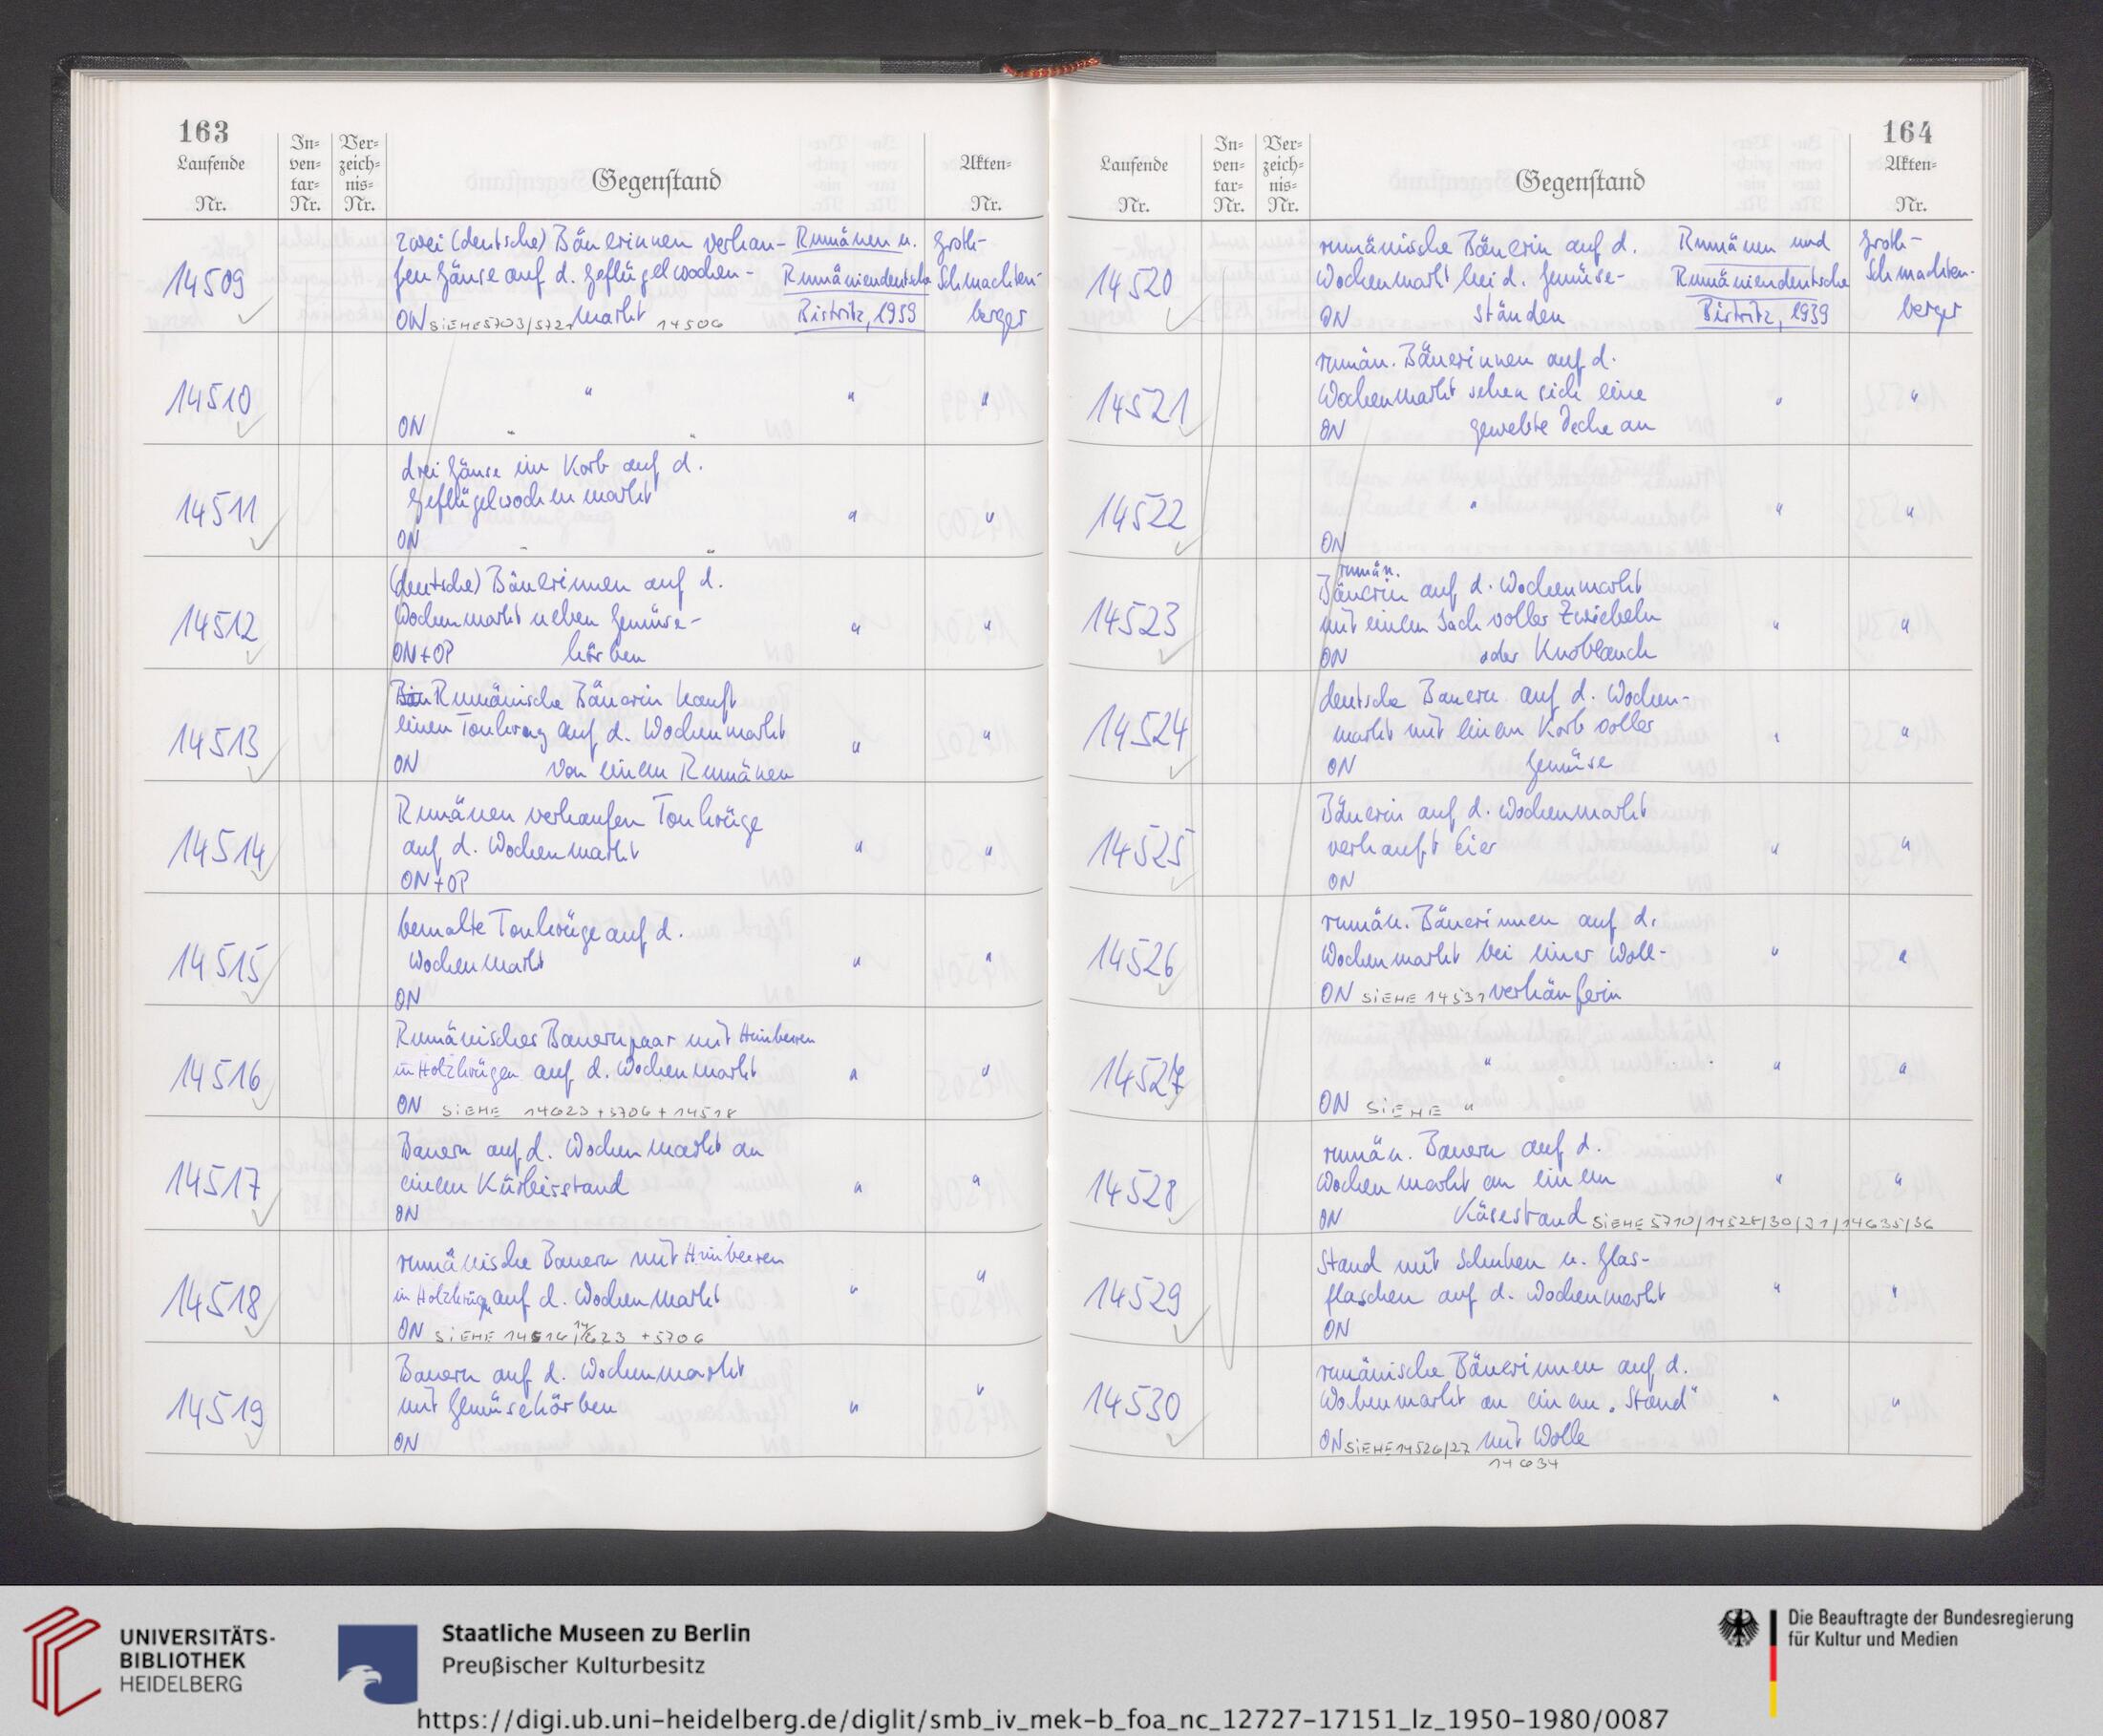 163
Laufende
Nr.
In-
ven-
tar-
Nr.
Ver-
zeich-
nis-
Nr.
Gegenstand
Akten-
Nr.
14509
zwei (deutsche) Bäuerinnen verkau- Rumänen u. Groth-
fen Gänse auf d. Geflügelwochen- Rumäniendeutsche Schmachten-
ON SIEHE 5703/5721 markt 14506 Bistritz, 1959 berger
14510
" " "
ON " "
14511
drei Gänse im Korb auf d.
Geflügelwochenmarkt " "
ON " "
14512
(deutsche) Bäuerinnen auf d.
Wochenmarkt neben Gemüse- " "
ON+OP körben
14513
Rumänische Bäuerin kauft
einen Tonkrug auf d. Wochenmarkt " "
ON von einem Rumänen
14514
Rumänen verkaufen Tonkrüge
auf d. Wochenmarkt " "
ON+OP
14515
bemalte Tonkrüge auf d.
Wochenmarkt " "
ON
14516
Rumänisches Bauernpaar mit Himbeeren
in Holzkrügen auf d. Wochenmarkt " "
ON SIEHE 14623+5706+14518
14517
Bauern auf d. Wochenmarkt an
einem Kürbisstand " "
ON
14518
rumänische Bauern mit Himbeeren
in Holzkrügen auf d. Wochenmarkt " "
ON SIEHE 14516/14623 +5706
14519
Bauern auf d. Wochenmarkt
mit Gemüsekörben " "
ON
164
Laufende
Nr.
In-
ven-
tar-
Nr.
Ver-
zeich-
nis-
Nr.
Gegenstand
Akten-
Nr.
14520
rumänische Bäuerin auf d. Rumänen und Groth-
Wochenmarkt bei d. Gemüse- Rumäniendeutsche Schmachten-
ON ständen Bistritz, 1939 berger
14521
rumän. Bäuerinnen auf d.
Wochenmarkt sehen sich eine " "
ON gewebte Decke an
14522
" " "
ON
14523
rumän.
Bäuerin auf d. Wochenmarkt
mit einem Sack voller Zwiebeln " "
ON oder Knoblauch
14524
deutsche Bauern auf d. Wochen-
markt mit einem Korb voller " "
ON Gemüse
14525
Bäuerin auf d. Wochenmarkt
verkauft Eier " "
ON
14526
rumän. Bäuerinnen auf d.
Wochenmarkt bei einer Woll- " "
ON SIEHE 14531 verkäuferin
14527
" " "
ON SIEHE "
14528
rumän. Bauern auf d.
Wochenmarkt an einem " "
ON Käsestand SIEHE 5710/14528/30/31/14635/36
14529
Stand mit Schuhen u. Glas-
flaschen auf d. Wochenmarkt " "
ON
14530
rumänische Bäuerinnen auf d.
Wochenmarkt an einem „Stand" " "
ON SIEHE 14526/27 mit Wolle
14634
UNIVERSITÄTS-
BIBLIOTHEK
HEIDELBERG
Staatliche Museen zu Berlin
Preußischer Kulturbesitz
Die Beauftragte der Bundesregierung
für Kultur und Medien
https://digi.ub.uni-heidelberg.de/diglit/smb_iv_mek-b_foa_nc_12727-17151_lz_1950-1980/0087